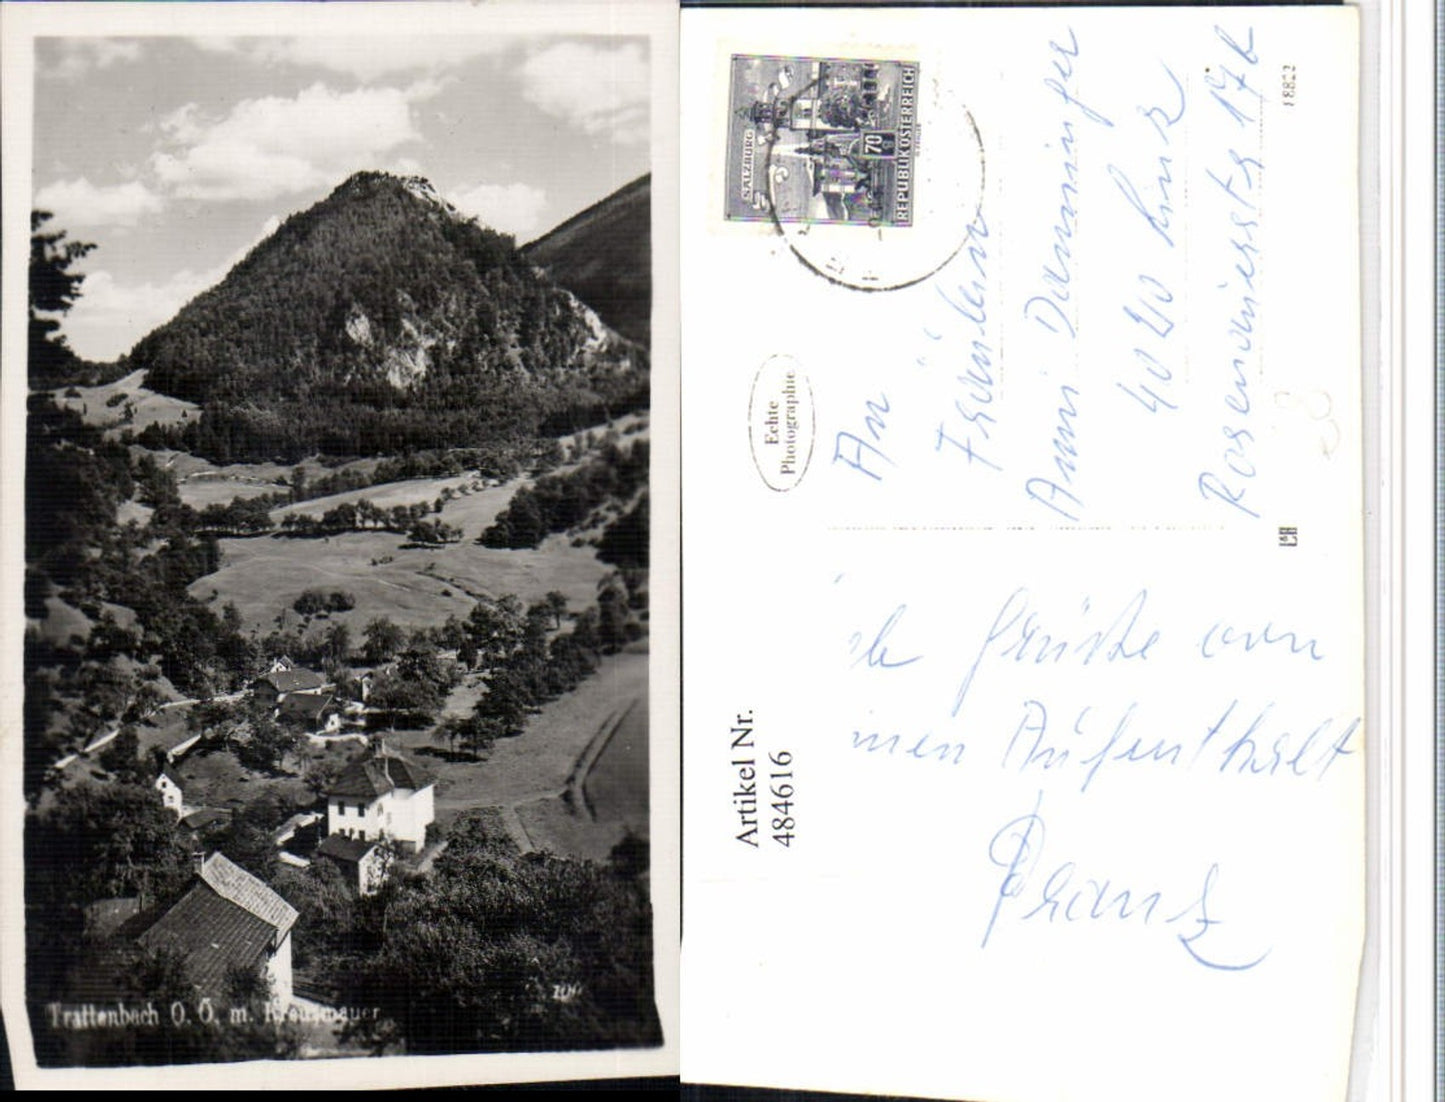 Trattenbach O. Ö. m. Kreuzmauer
100
SALZBURG
70 g
REPUBLIK ÖSTERREICH
Echte
Photographie
An
Fräulein
Anni Danninger
4020 Linz
Rosenauerstr 17b
18822
Artikel Nr.
484616
Grüße von
Aufenthalt
Franz